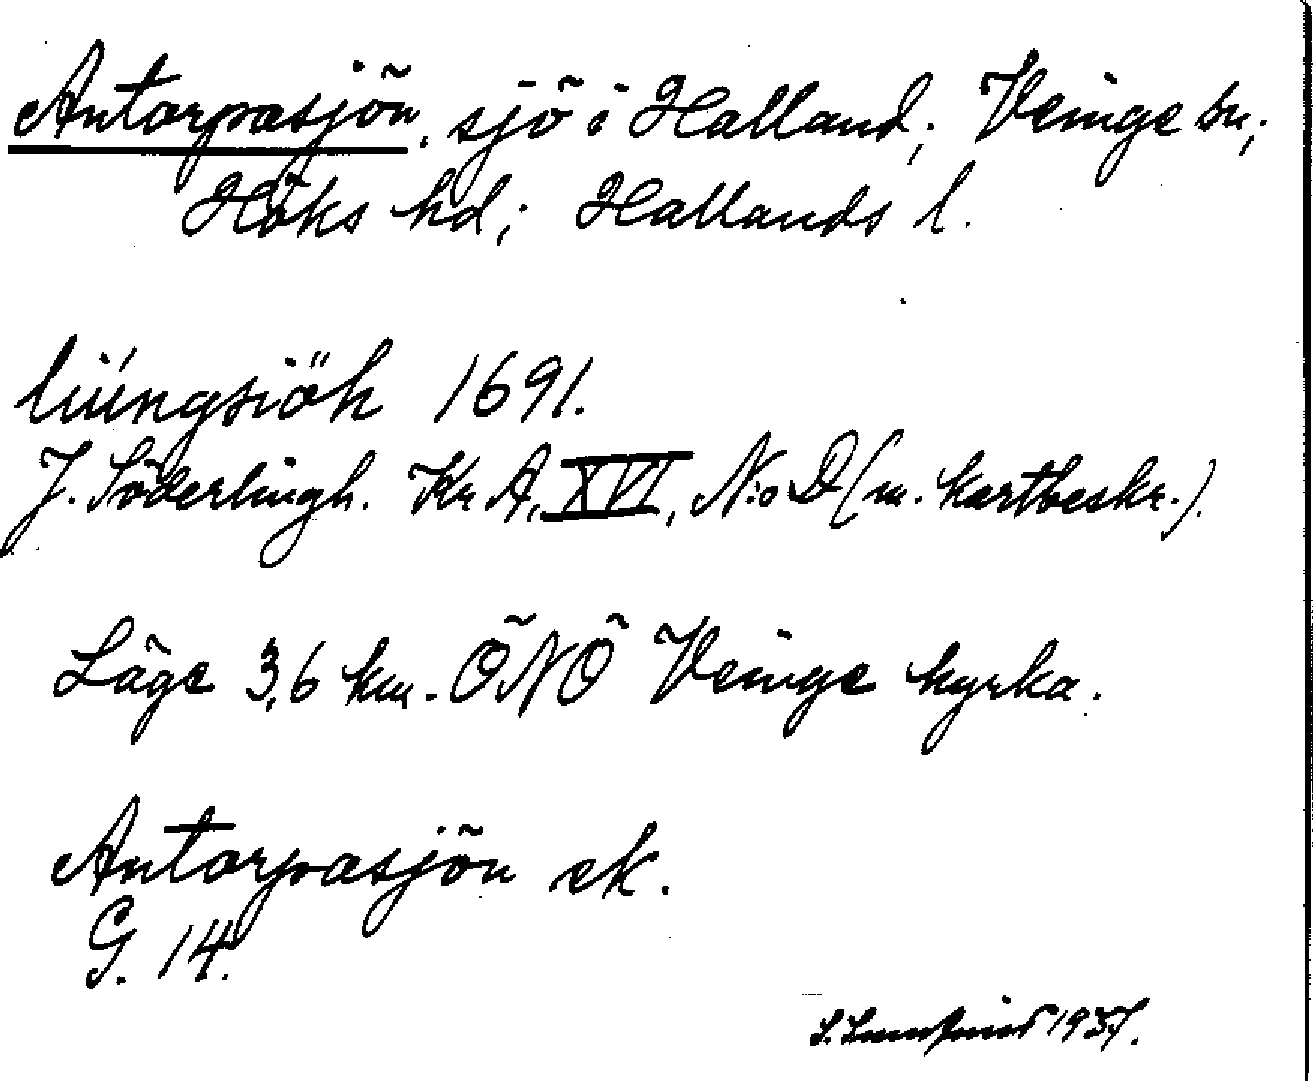 Antorpasjön, sjö i Halland; Veinge sn;
Höks hd; Hallands l.
liüngsiöh 1691.
J. Söderlingh. Kr. A, XVI, N:o D (m. kartbeskr.).
Läge 3,6 km. ÖNÖ Veinge kyrka.
Antorpasjön ek.
G. 14.
1937.